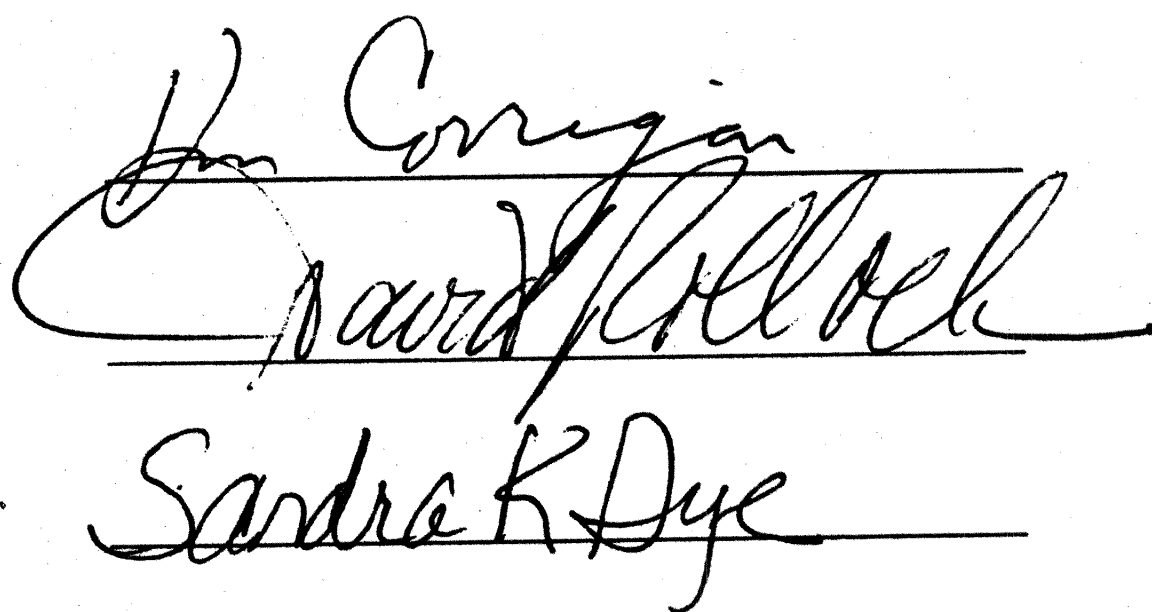 Corrigan
David Pollock
Sandra K Dye